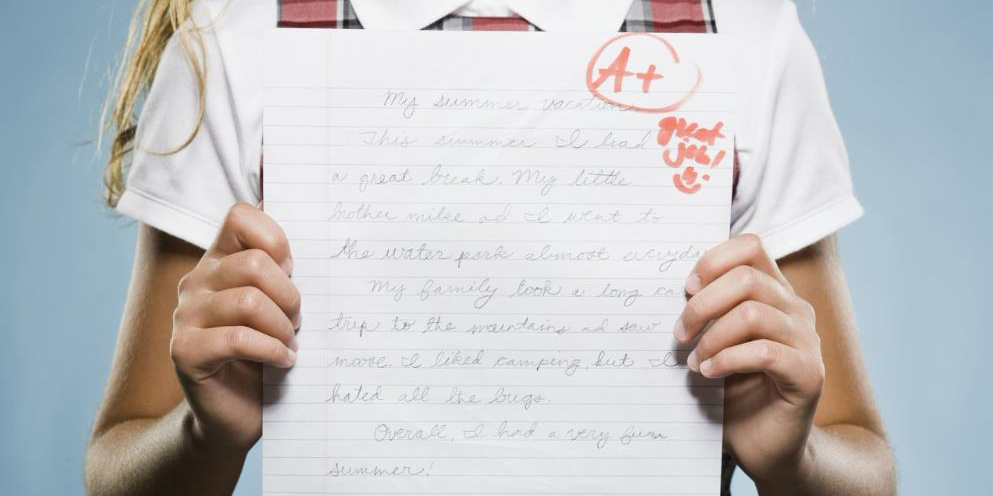 A+
My summer vacation
great
job!
This summer I had
a great break. My little
brother mike ad I went to
the water park almost everyday
My family took a long
trip to the mountains ad saw
moose. I liked camping but I
hated all the bugs.
Overall, I had a very fun
summer!